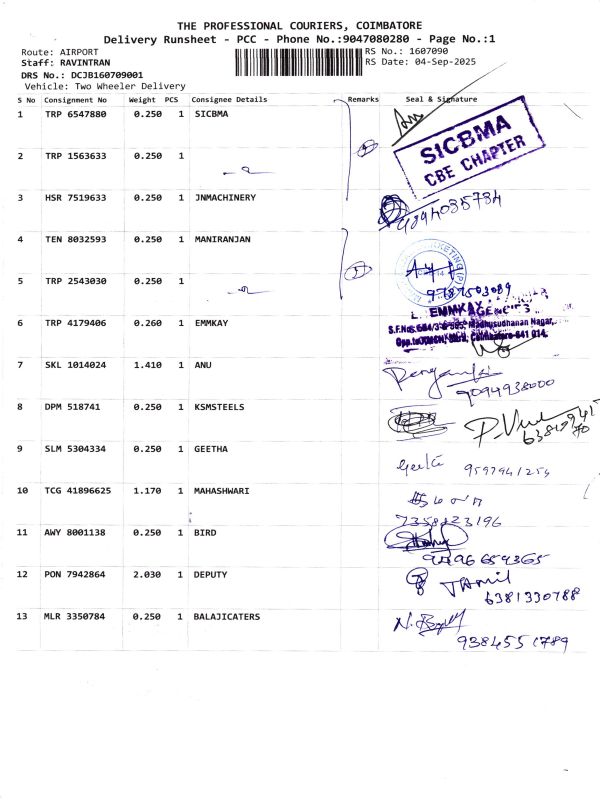 THE PROFESSIONAL COURIERS, COIMBATORE
Delivery Runsheet - PCC - Phone No.:9047080280 - Page No.:1
Route: AIRPORT RS No.: 1607090
Staff: RAVINTRAN RS Date: 04-Sep-2025
DRS No.: DCJB160709001
Vehicle: Two Wheeler Delivery
S No Consignment No Weight PCS Consignee Details Remarks Seal & Signature
1 TRP 6547880 0.250 1 SICBMA
SICBMA
CBE CHAPTER
2 TRP 1563633 0.250 1
3 HSR 7519633 0.250 1 JNMACHINERY
9894035734
4 TEN 8032593 0.250 1 MANIRANJAN
5 TRP 2543030 0.250 1
9787503089
6 TRP 4179406 0.260 1 EMMKAY
EMMKAY AGENCIES
Madhusudhanan Nagar,
Coimbatore-641 014.
7 SKL 1014024 1.410 1 ANU
9094938000
8 DPM 518741 0.250 1 KSMSTEELS
9 SLM 5304334 0.250 1 GEETHA
Geetha 9597941254
10 TCG 41896625 1.170 1 MAHASHWARI
7358823196
11 AWY 8001138 0.250 1 BIRD
12 PON 7942864 2.030 1 DEPUTY
Tamil
6381330788
13 MLR 3350784 0.250 1 BALAJICATERS
9384551789